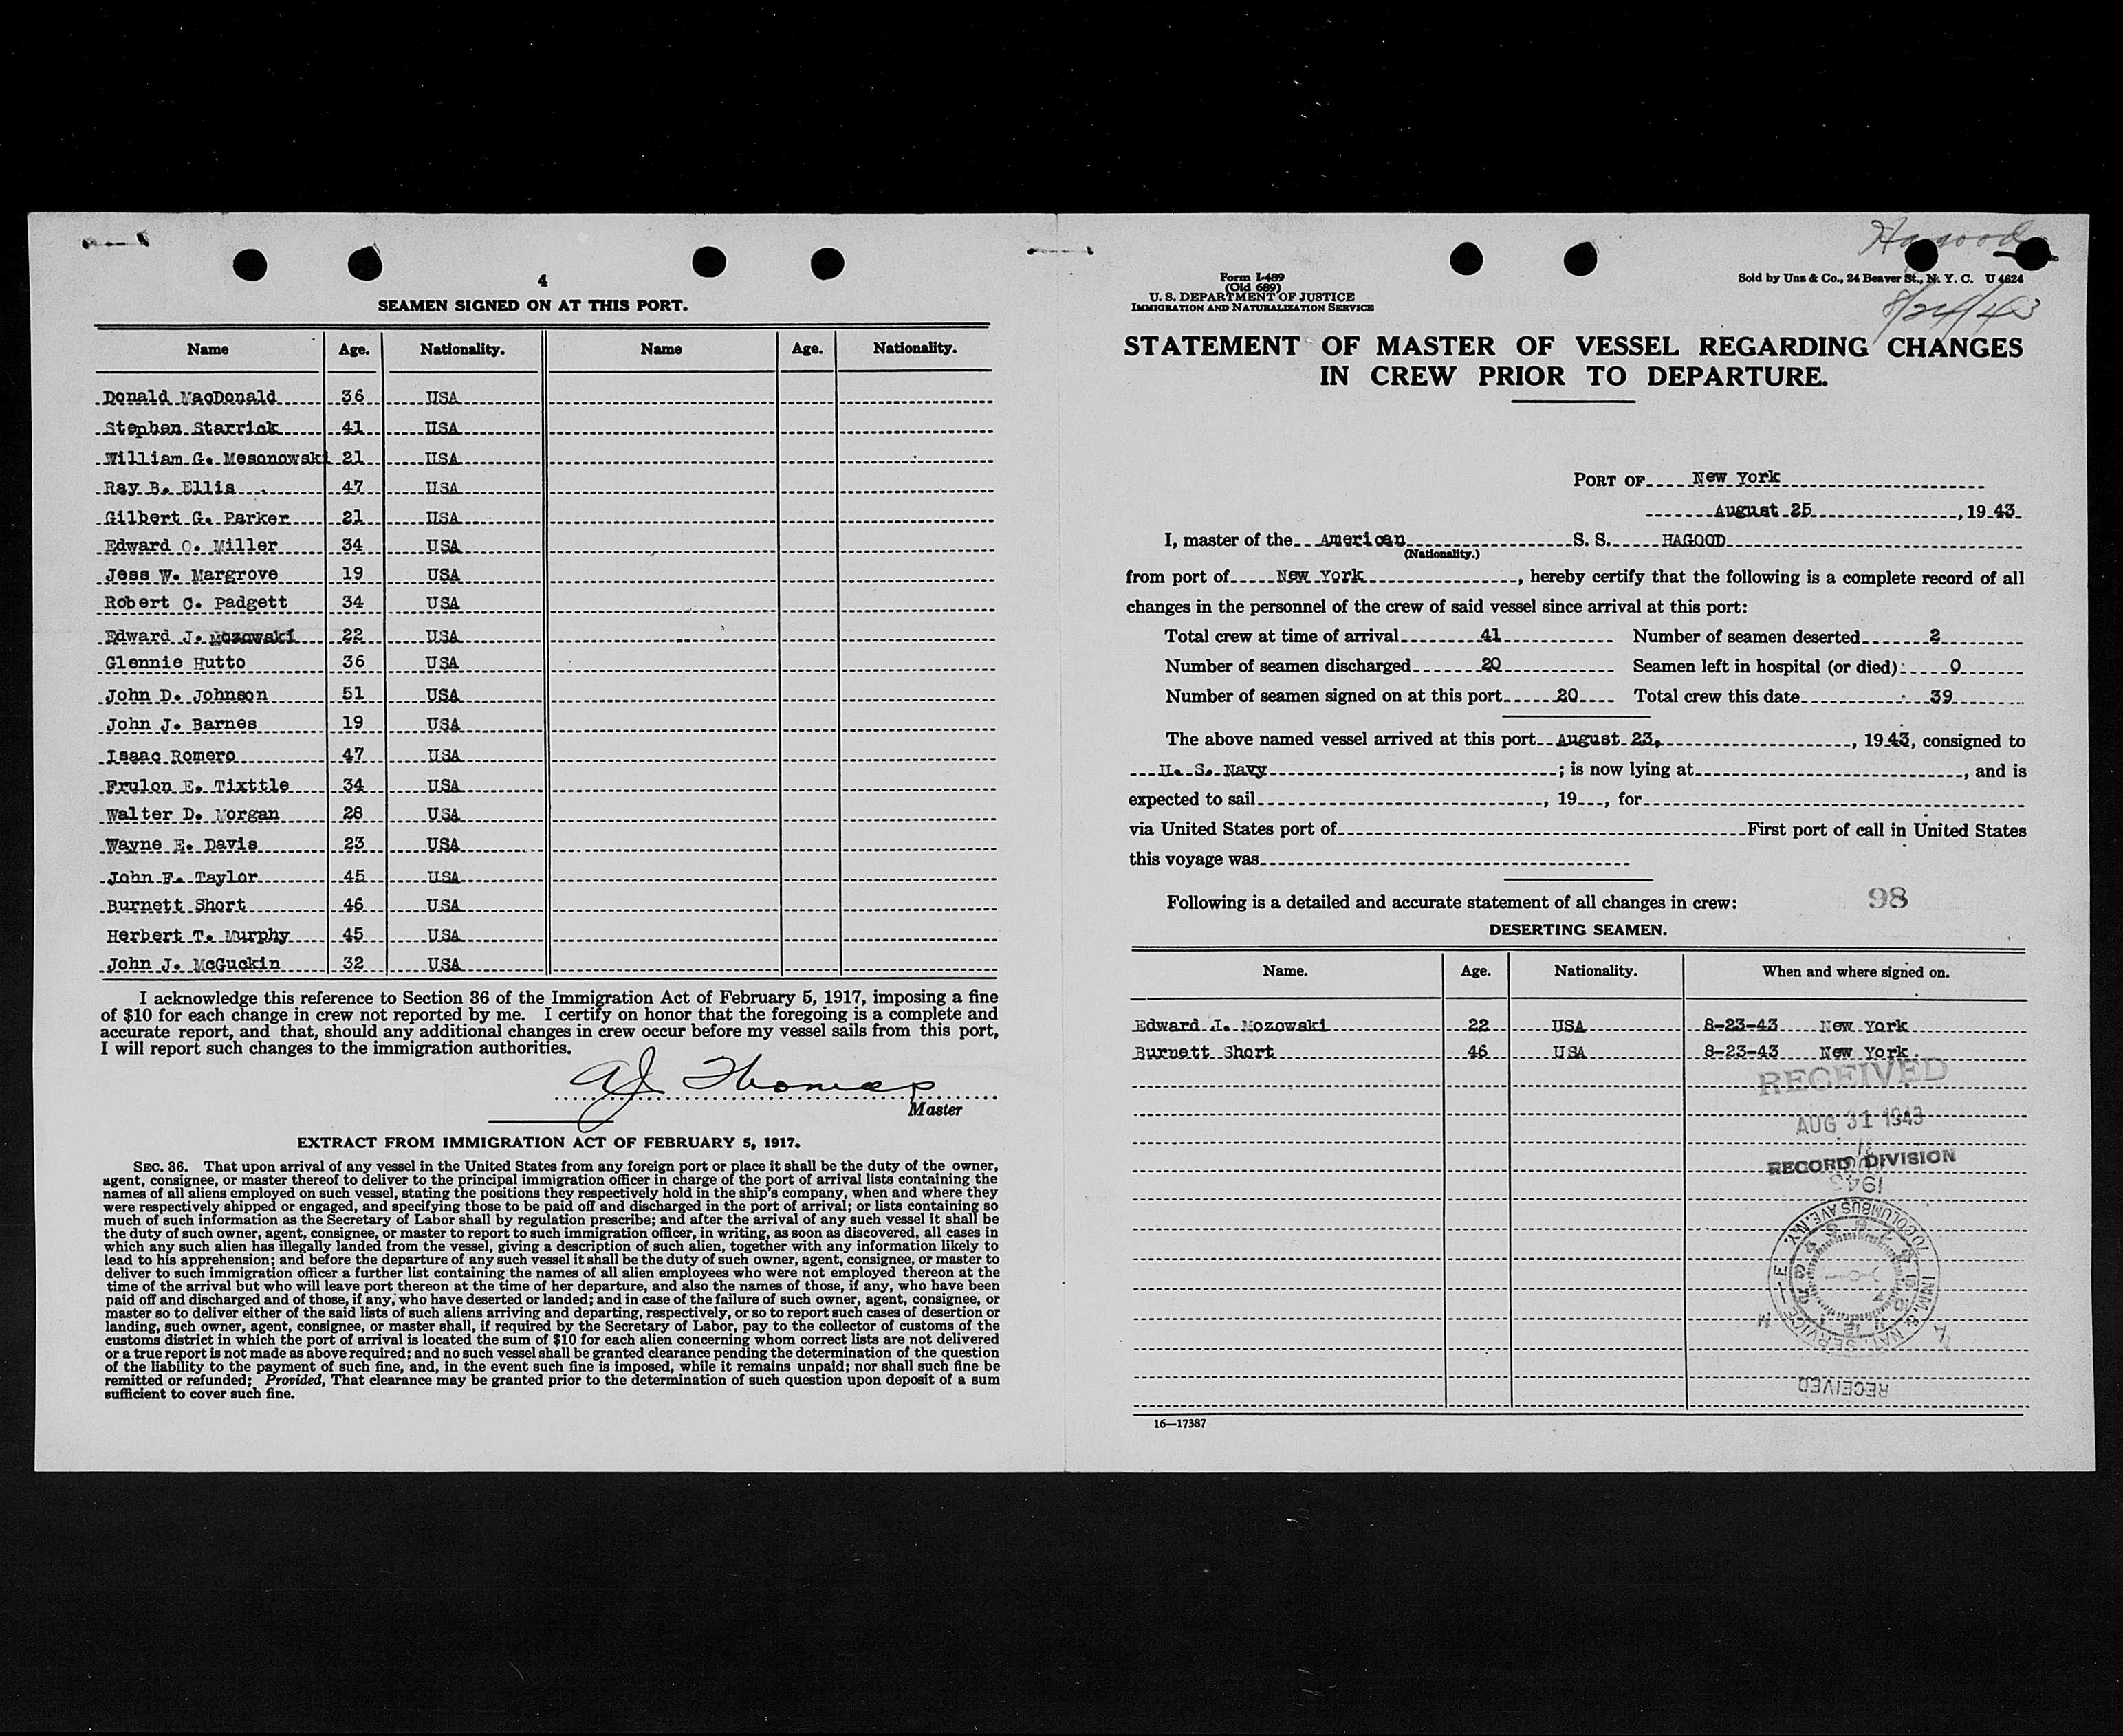 4
SEAMEN SIGNED ON AT THIS PORT.
Name Age. Nationality. Name Age. Nationality.
Donald MacDonald 36 USA
Stephen Starrick 41 USA
William G. Mesonowski 21 USA
Ray B. Ellis 47 USA
Gilbert G. Parker 21 USA
Edward O. Miller 34 USA
Jess W. Margrove 19 USA
Robert C. Padgett 34 USA
Edward J. Mozowski 22 USA
Glennie Hutto 36 USA
John D. Johnson 51 USA
John J. Barnes 19 USA
Isaac Romero 47 USA
Frulon E. Tixttle 34 USA
Walter D. Morgan 28 USA
Wayne E. Davis 23 USA
John F. Taylor 45 USA
Burnett Short 46 USA
Herbert T. Murphy 45 USA
John J. McGuckin 32 USA
I acknowledge this reference to Section 36 of the Immigration Act of February 5, 1917, imposing a fine
of $10 for each change in crew not reported by me. I certify on honor that the foregoing is a complete and
accurate report, and that, should any additional changes in crew occur before my vessel sails from this port,
I will report such changes to the immigration authorities.
AJ Thomas
Master
EXTRACT FROM IMMIGRATION ACT OF FEBRUARY 5, 1917.
SEC. 36. That upon arrival of any vessel in the United States from any foreign port or place it shall be the duty of the owner,
agent, consignee, or master thereof to deliver to the principal immigration officer in charge of the port of arrival lists containing the
names of all aliens employed on such vessel, stating the positions they respectively hold in the ship's company, when and where they
were respectively shipped or engaged, and specifying those to be paid off and discharged in the port of arrival; or lists containing so
much of such information as the Secretary of Labor shall by regulation prescribe; and after the arrival of any such vessel it shall be
the duty of such owner, agent, consignee, or master to report to such immigration officer, in writing, as soon as discovered, all cases in
which any such alien has illegally landed from the vessel, giving a description of such alien, together with any information likely to
lead to his apprehension; and before the departure of any such vessel it shall be the duty of such owner, agent, consignee, or master to
deliver to such immigration officer a further list containing the names of all alien employees who were not employed thereon at the
time of the arrival but who will leave port thereon at the time of her departure, and also the names of those, if any, who have been
paid off and discharged and of those, if any, who have deserted or landed; and in case of the failure of such owner, agent, consignee, or
master so to deliver either of the said lists of such aliens arriving and departing, respectively, or so to report such cases of desertion or
landing, such owner, agent, consignee, or master shall, if required by the Secretary of Labor, pay to the collector of customs of the
customs district in which the port of arrival is located the sum of $10 for each alien concerning whom correct lists are not delivered
or a true report is not made as above required; and no such vessel shall be granted clearance pending the determination of the question
of the liability to the payment of such fine, and, in the event such fine is imposed, while it remains unpaid; nor shall such fine be
remitted or refunded; Provided, That clearance may be granted prior to the determination of such question upon deposit of a sum
sufficient to cover such fine.
Hagood
Form I-489
(Old 689)
U. S. DEPARTMENT OF JUSTICE
IMMIGRATION AND NATURALIZATION SERVICE
Sold by Unz & Co., 24 Beaver St., N. Y. C. U 4624
8/24/43
STATEMENT OF MASTER OF VESSEL REGARDING CHANGES
IN CREW PRIOR TO DEPARTURE.
PORT OF New York
August 25, 1943
I, master of the American S. S. HAGOOD
(Nationality.)
from port of New York, hereby certify that the following is a complete record of all
changes in the personnel of the crew of said vessel since arrival at this port:
Total crew at time of arrival 41 Number of seamen deserted 2
Number of seamen discharged 20 Seamen left in hospital (or died): 0
Number of seamen signed on at this port 20 Total crew this date 39
The above named vessel arrived at this port August 23, 1943, consigned to
U. S. Navy; is now lying at, and is
expected to sail, 19, for
via United States port of First port of call in United States
this voyage was
Following is a detailed and accurate statement of all changes in crew: 98
DESERTING SEAMEN.
Name. Age. Nationality. When and where signed on.
Edward J. Mozowski 22 USA 8-23-43 New York
Burnett Short 46 USA 8-23-43 New York.
RECEIVED
AUG 31 1943
RECORD DIVISION
1943
70 COLUMBUS AVE. N.Y.
IMM. & NAT. SERVICE
RECEIVED
16—17387